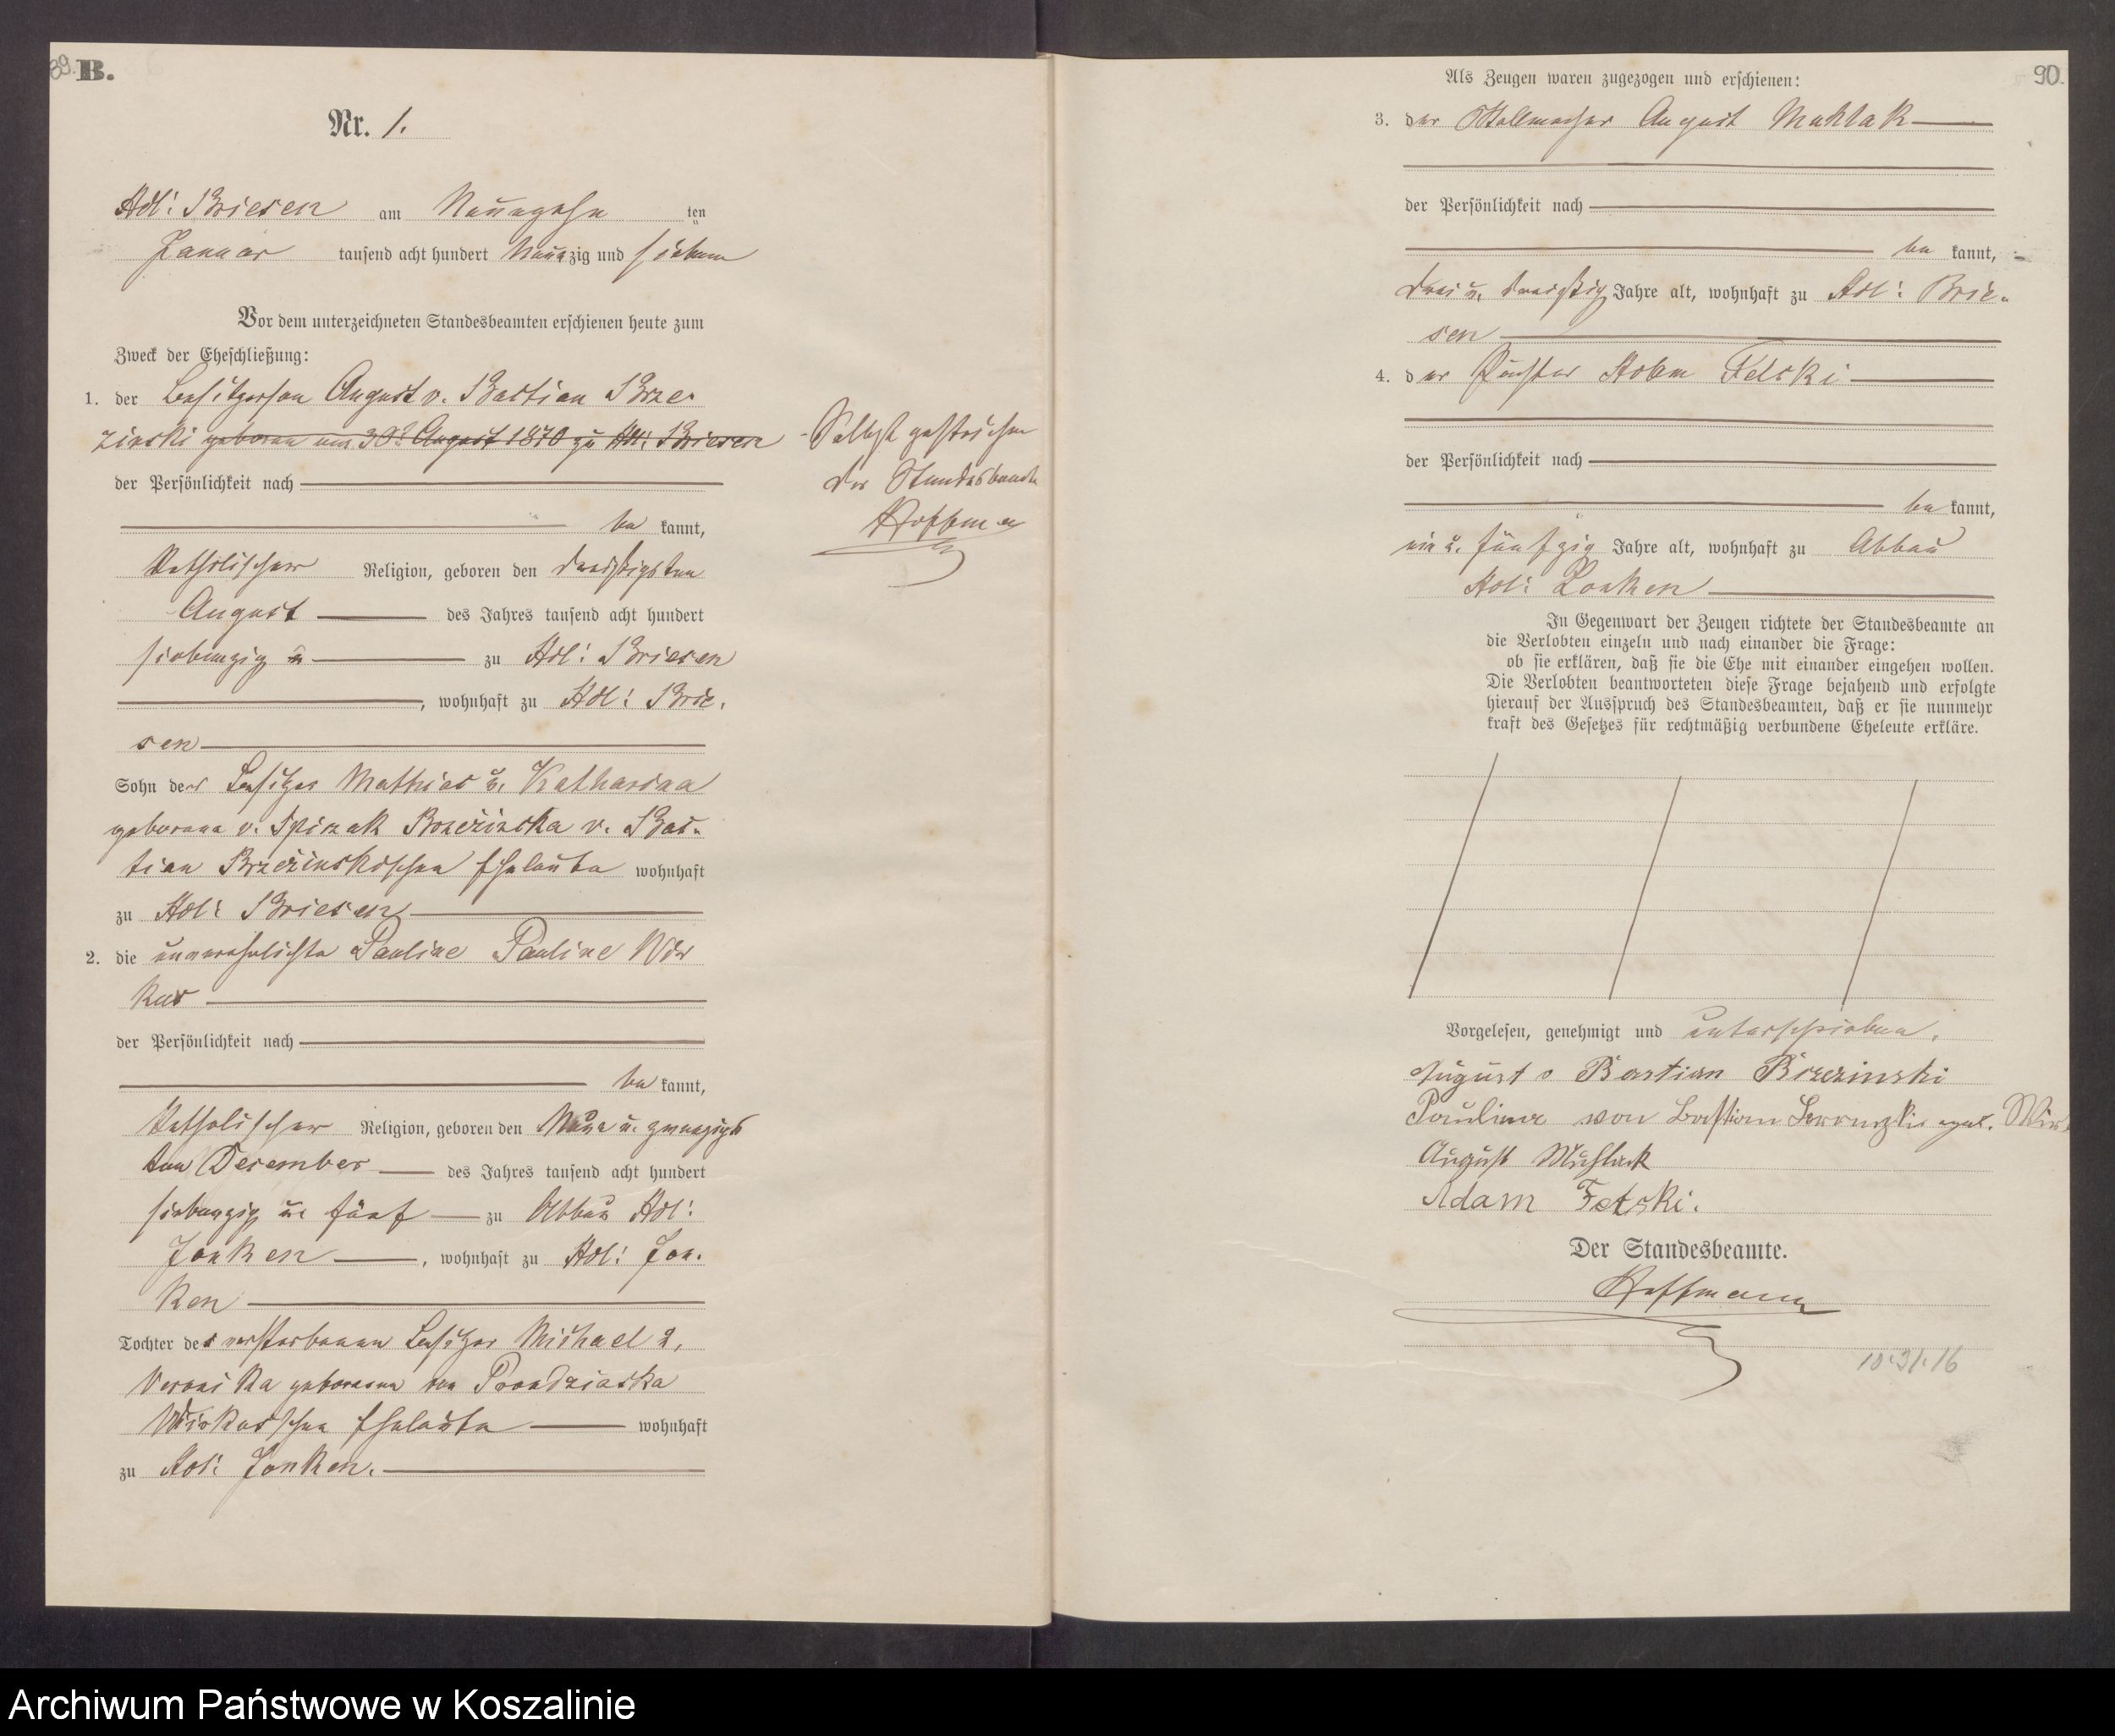 89.
B.
Nr. 1.
Adl: Briesen am Neunzehn ten
Januar tausend acht hundert Neunzig und sieben
Vor dem unterzeichneten Standesbeamten erschienen heute zum
Zweck der Eheschließung:
1. der Besitzersohn August v. Bastian Brze-
zinski geboren am 30t August 1870 zu Adl: Briesen
der Persönlichkeit nach
be kannt,
katholischer Religion, geboren den dreißigsten
August des Jahres tausend acht hundert
siebenzig zu Adl: Briesen
, wohnhaft zu Adl: Brie-
sen
Sohn der Besitzer Mathias u. Katharina
geborene v. Spiczak Brzezinska v. Bas-
tian Brzezinskischen Eheleute wohnhaft
zu Adl: Briesen
2. die unverehelichte Pauline Pauline Wir
kus
der Persönlichkeit nach
be kannt,
katholischer Religion, geboren den Neun u. zwanzigs
ten Desember des Jahres tausend acht hundert
siebenzig u. fünf zu Abbau Adl:
Lonken, wohnhaft zu Adl: Lon-
ken
Tochter der verstorbenen Besitzer Michael u.
Veronika geborenen von Prondzinska
Wirkusschen Eheleute wohnhaft
zu Adl: Lonken.
Selbst gestrichen
Der Standesbeamte
Hoffmann
90.
Als Zeugen waren zugezogen und erschienen:
3. der Stellmacher August Muhlak
der Persönlichkeit nach
be kannt,
drei u. dreißig Jahre alt, wohnhaft zu Adl: Brie-
sen
4. der Pächter Adam Fetski
der Persönlichkeit nach
be kannt,
ein u. fünfzig Jahre alt, wohnhaft zu Abbau
Adl: Lonken
In Gegenwart der Zeugen richtete der Standesbeamte an
die Verlobten einzeln und nach einander die Frage:
ob sie erklären, daß sie die Ehe mit einander eingehen wollen.
Die Verlobten beantworteten diese Frage bejahend und erfolgte
hierauf der Ausspruch des Standesbeamten, daß er sie nunmehr
kraft des Gesetzes für rechtmäßig verbundene Eheleute erkläre.
Vorgelesen, genehmigt und unterschrieben.
August v Bastian Brzezinski
Pauline von Bastian geb. Wir
August Muhlack
Adam Fetski.
Der Standesbeamte.
Hoffmann
10.31.16
Archiwum Państwowe w Koszalinie